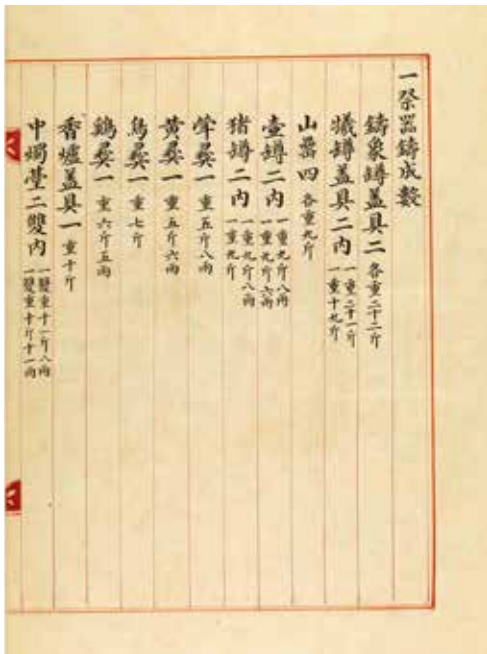 一祭器鑄成數
鑄象罇盖具二 各重二十二斤
犧罇盖具二內 一重二十一斤 一重十九斤
山罍四 各重九斤
壺罇二內 一重九斤八兩 一重九斤六兩
猪罇二內 一重九斤八兩 一重九斤
斝彛一 重五斤八兩
黄彛一 重五斤六兩
鳥彛一 重七斤
鷄彛一 重六斤五兩
香爐盖具一 重十斤
中燭䑓二雙內 一雙重十一斤八兩 一雙重十斤十一兩